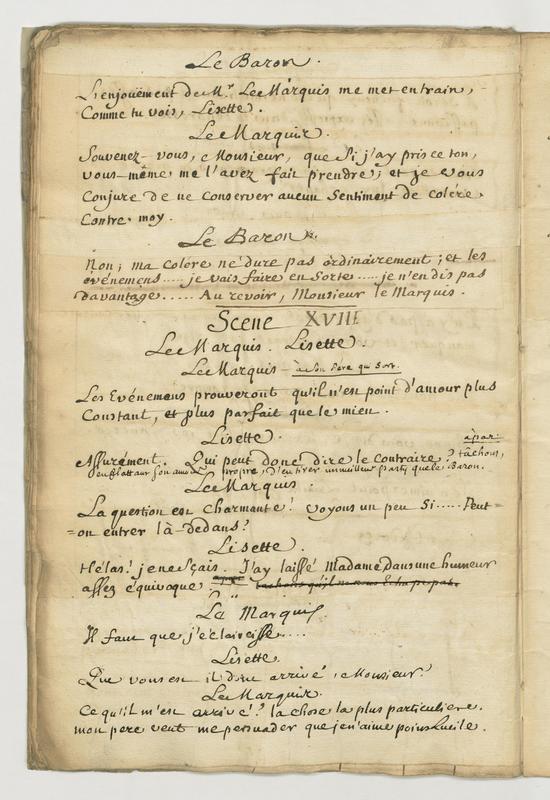 Le Baron.
L'enjouëment de Mr. Le Marquis me met en train,
Comme tu vois, Lisette.
Le Marquis.
Souvenez-vous, Monsieur, que si j'ay pris ce ton,
vous-même me l'avez fait prendre; et je vous
Conjure de ne conserver aucun Sentiment de colére.
Contre moy.
Le Baron.
Non; ma colére ne dure pas ordinairement; et les
évenemens..... je vais faire en Sorte..... je n'en dis pas
davantage..... Au revoir, Monsieur le Marquis.
Scene XVIII
Le Marquis. Lisette.
Le Marquis à Son Pére qui Sort.
Les Evénemens prouveront qu'il n'est point d'amour plus
Constant, et plus parfait que le mien.
Lisette. àpar
Assurément. Qui peut donc dire le contraire? tâchons,
en flattant Son amour propre, d'en tirer un meilleur party que le Baron.
Le Marquis.
La question est Charmante! voyons un peu Si..... Peut-
=on entrer là-dedans?
Lisette.
Hélas! je ne sçais. J'ay laissé Madame dans une humeur
assez équivoque apart tachons qu'il ne nous Echape pas.
Le Marquis
Il faut que j'éclaircisse....
Lisette.
Que vous est il donc arrivé, Monsieur?
Le Marquis.
Ce qu'il m'est arrivé? la chose la plus particuliere.
mon pere veut me persuader que je n'aime point Lucile.